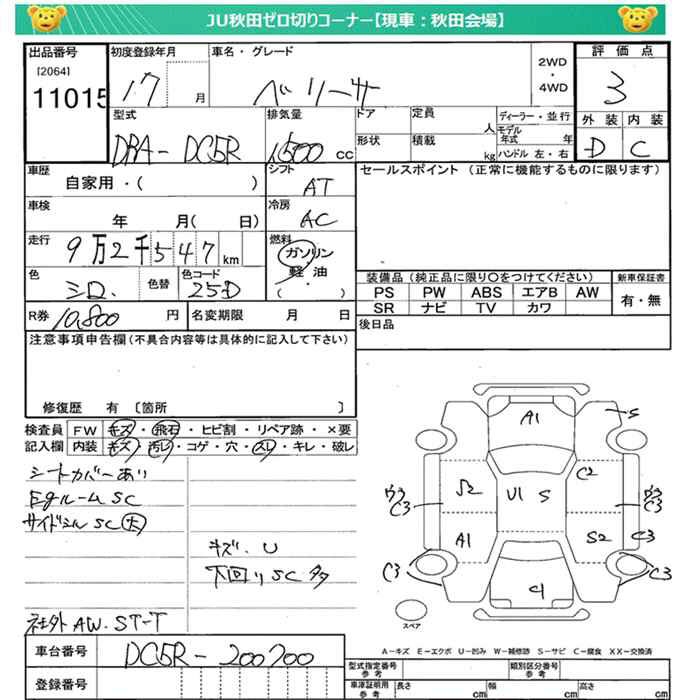 JU秋田ゼロ切りコーナー【現車:秋田会場】
出品番号 初度登録年月 車名・グレード 2WD・4WD 評価点
[2064] 11015 17 月 ベリーサ 3
型式 排気量 ドア 定員 人 ディーラー・並行 外装 内装
DBA-DC5R 1,500 cc 形状 積載 kg モデル年式 年 ハンドル 左・右 D C
車歴 シフト セールスポイント(正常に機能するものに限ります)
自家用・( ) AT
車検 冷房
年 月(日) AC
走行 燃料
9万2千547km ガソリン
軽油
( ・ )
色 色替 色コード 装備品(純正品に限り○をつけてください) 新車保証書
シロ. 25D PS PW ABS エアB AW 有・無
SR ナビ TV カワ
R券 10,800 円 名変期限 月 日 後日品
注意事項申告欄(不具合内容等は具体的に記入して下さい)
修復歴 有 [箇所 ]
検査員 FW キズ・飛石・ヒビ割・リペア跡・×要
記入欄 内装 キズ・汚レ・コゲ・穴・スレ・キレ・破レ
シートカバーあり
Egルームsc
サイドシルsc(大)
キズ.U
下回りsc多
社外AW.ST-T
A1 S
S2 U1 S C2
ウラ C3 ウラ C3
A1 S2 C3
C3 C1 C3
スペア
A-キズ E-エクボ U-凹み W-補修跡 S-サビ C-腐食 XX-交換済
車台番号 DC5R-200700 型式指定番号 参考 類別区分番号 参考
登録番号 車庫証明用 参考 長さ cm 幅 cm 高さ cm